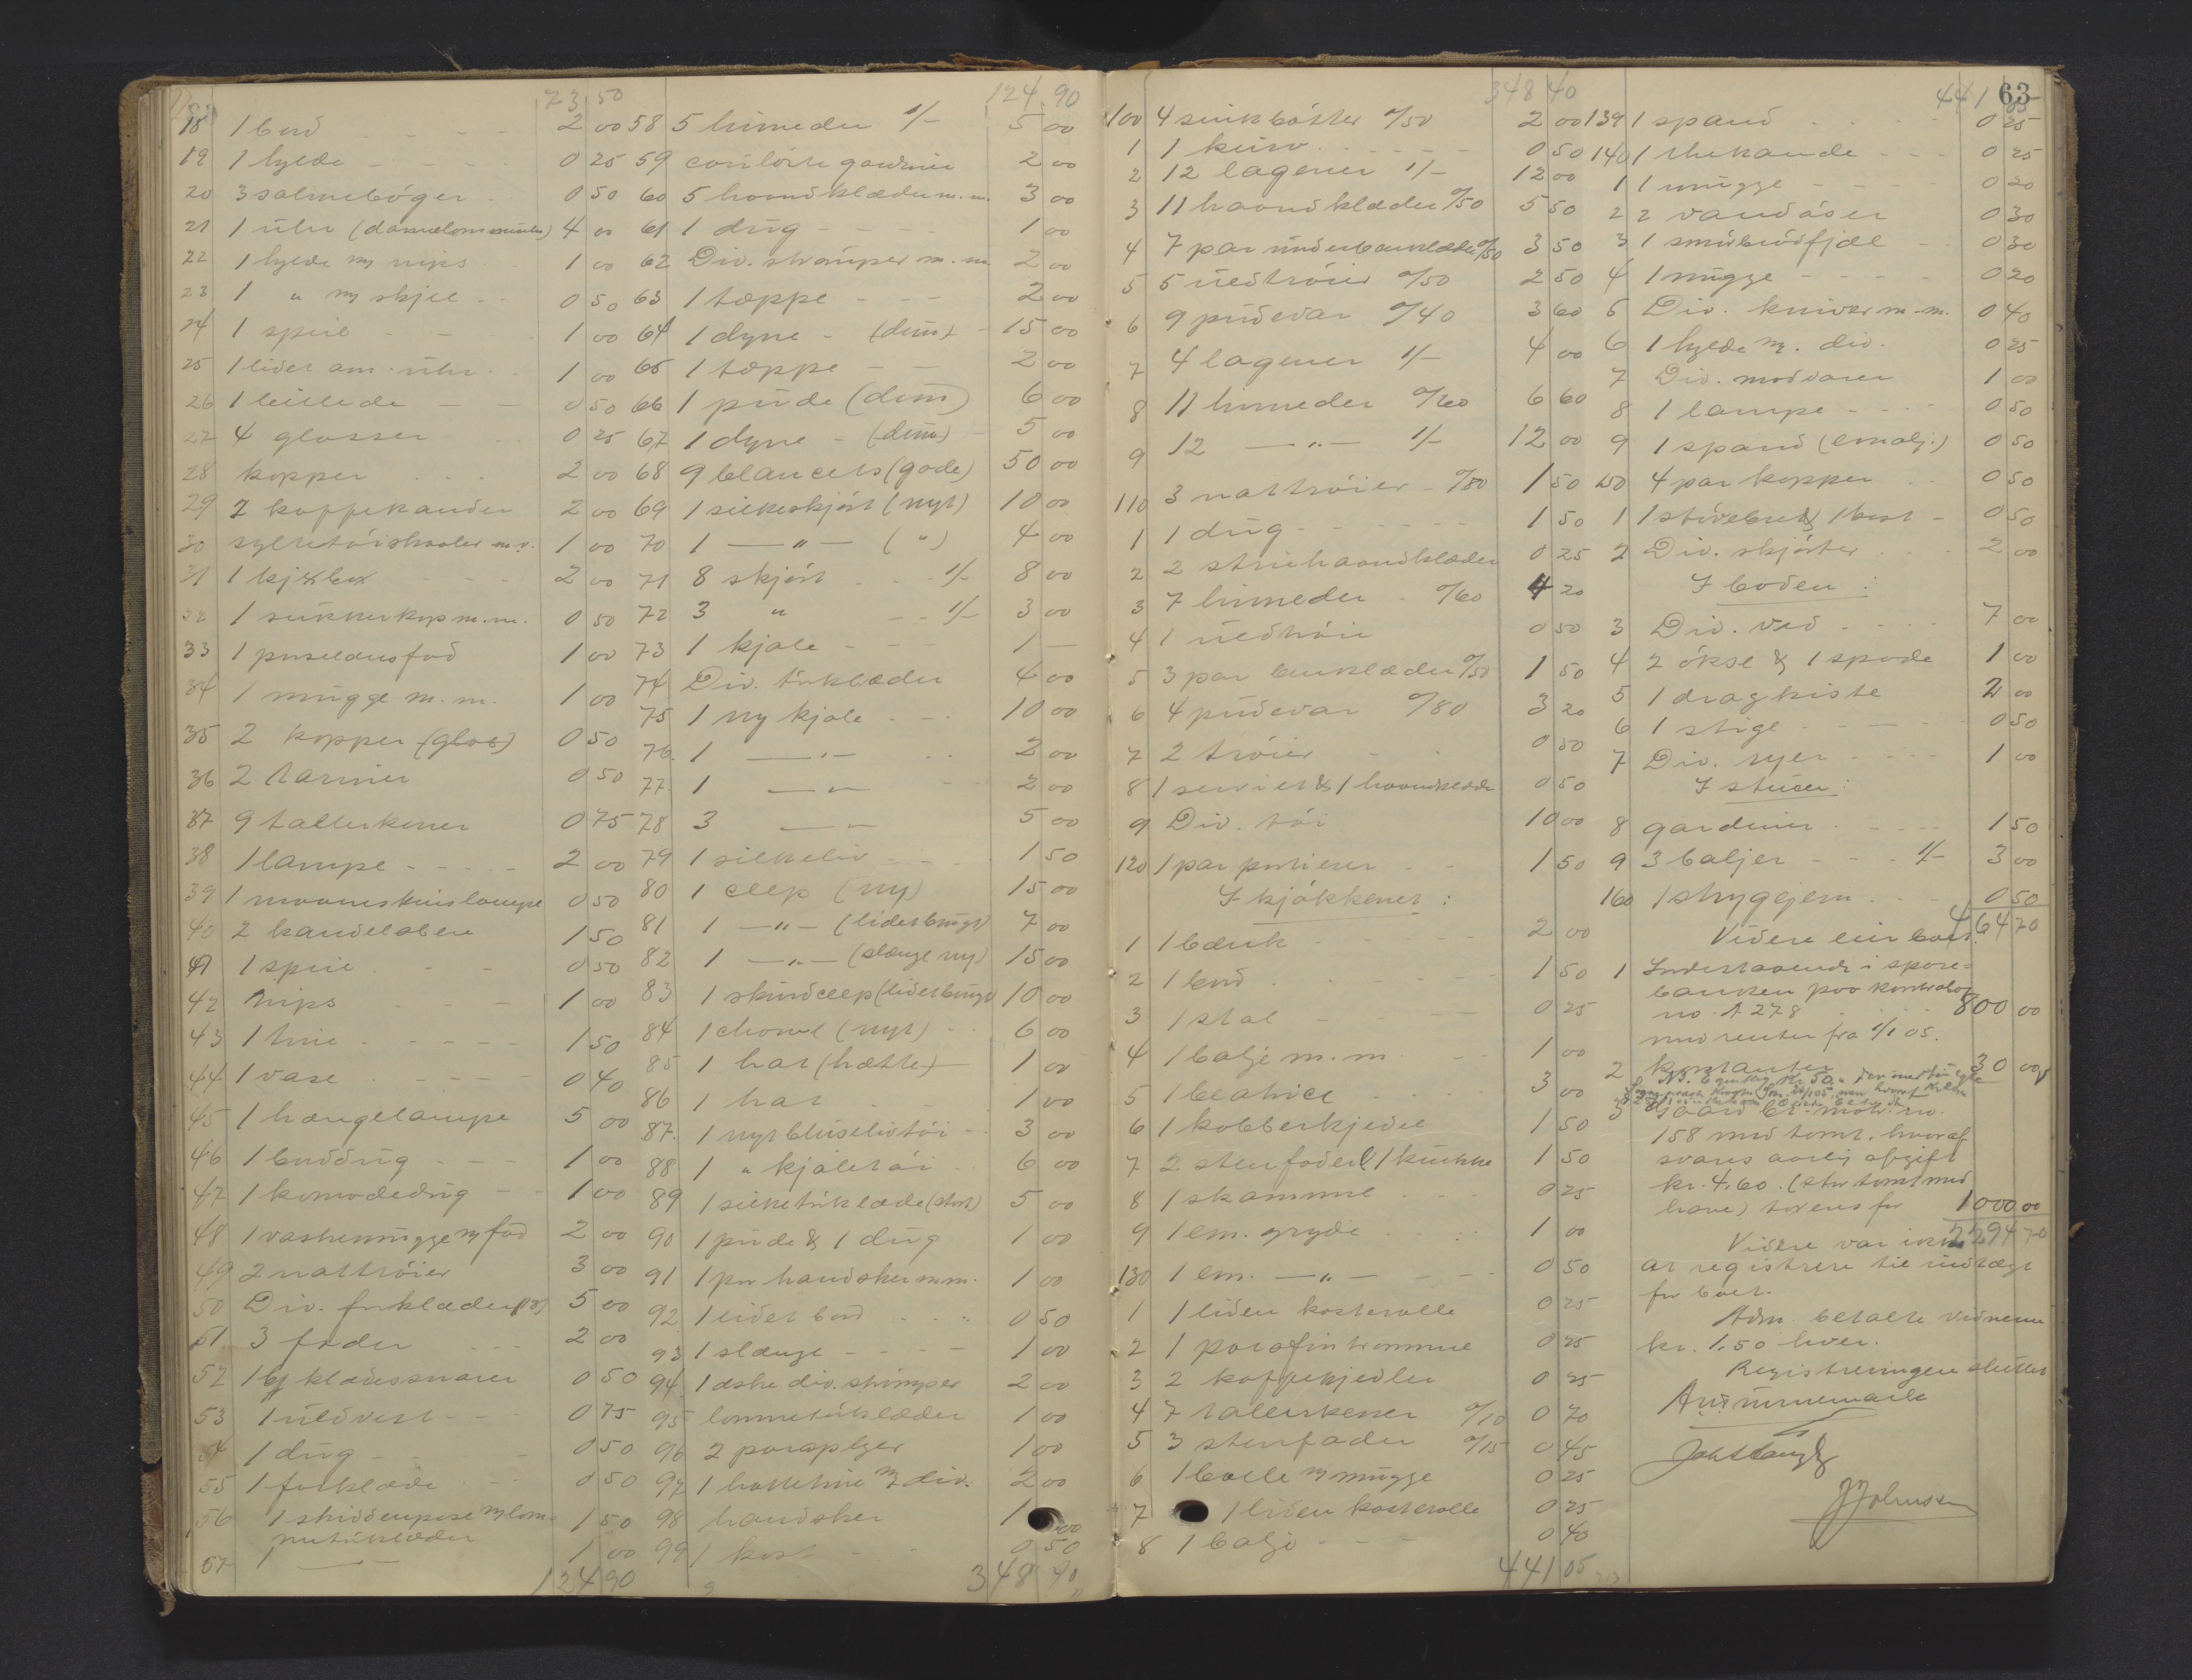 73 50
18 1 bord 2 00
19 1 hylde 0 25
20 3 salmebøger 0 50
21 1 uhr 4 00
22 1 hylde m nips 1 00
23 1 " m skjel 0 50
24 1 speil 1 00
25 1 lidet am. uhr 1 00
26 1 billede 0 50
27 4 glasser 0 25
28 kopper 2 00
29 2 kaffekander 2 00
30 syltetøiskaaler m.v. 1 00
31 1 kjxbox 2 00
32 1 sukkerkop m.m. 0 50
33 1 porselænsfad 1 00
34 1 mugge m.m. 1 00
35 2 kopper (glas) 0 50
36 2 tariner 0 50
37 9 tallerkener 0 75
38 1 lampe 2 00
39 1 maaneskinslampe 0 50
40 2 kandelabere 1 50
41 1 speil 0 50
42 nips 1 00
43 1 tine 1 50
44 1 vase 0 40
45 1 hængelampe 5 00
46 1 borddug 1 00
47 1 komodedug 1 00
48 1 vaskemugge m fad 2 00
49 2 nattrøier 3 00
50 Div. forklæder 5 00
51 3 foder 2 00
52 1 klædessnører 0 50
53 1 uldvest 0 75
54 1 dug 0 50
55 1 forklæde 0 50
56 1 skiddenpose m lom=
metørklæder 1 50
57 1 —"— 1 00
124 90
124.90
58 5 linneder 1/- 5 00
59 coulørte gardiner 2 00
60 5 haandklæder m.m. 3 00
61 1 dug 1 00
62 Div. strømper m.m. 2 00
63 1 tæppe 2 00
64 1 dyne (dun) 15 00
65 1 tæppe 2 00
66 1 pude (dun) 6 00
67 1 dyne (dun) 5 00
68 9 blancets (gode) 50 00
69 1 silkeskjørt (nyt) 10 00
70 1 —"— (") 4 00
71 8 skjørt 1/- 8 00
72 3 " 1/- 3 00
73 1 kjole 1 —
74 Div. tørklæder 4 00
75 1 ny kjole 10 00
76. 1 —"— 2 00
77. 1 —"— 2 00
78 3 —"— 5 00
79 1 silkeliv 1 50
80 1 ceep (ny) 15 00
81 1 —"— (lidet brugt) 7 00
82 1 —"— (slænge ny) 15 00
83 1 skindceep (lidet brugt) 10 00
84 1 chawl (nyt) 6 00
85 1 hat (hætte) 1 00
86 1 hat 1 00
87. 1 nyt bluselivtøi 3 00
88 1 " kjoletøi 6 00
89 1 silketørklæde (stort) 5 00
90 1 pude & 1 dug 1 00
91 1 par handsker m.m. 1 00
92. 1 lidet bord 0 50
93 1 slænge 1 00
94 1 æske div. strømper 2 00
95 lommetørklæder 1 00
96 2 paraplyer 1 00
97 1 hatteline m div. 2 00
98 handsker 1 00
99 1 kost 0 50
348 40
348 40
100 4 sinkbøtter 0/50 2 00
1 1 kurv 0 50
2 12 lagener 1/- 12 00
3 11 haandklæder 0/50 5 50
4 7 par underbenklæder 0/50 3 50
5 5 uldtrøier 0/50 2 50
6 9 pudevar 0/40 3 60
7 4 lagener 1/- 4 00
8 11 linneder 0/60 6 60
9 12 —"— 1/- 12 00
110 3 nattrøier 0/50 1 50
1 1 dug 1 50
2 2 striehaandklæder 0 25
3 7 linneder 0/60 4 20
4 1 uldtrøie 0 50
5 3 par benklæder 0/50 1 50
6 4 pudevar 0/80 3 20
7 2 trøier 0 50
8 1 serviet & 1 haandklæde 0 50
9 Div. tøi 10 00
120 1 par portierer 1 50
I kjøkkenet:
1 1 bænk 2 00
2 1 bord 1 50
3 1 stol 0 25
4 1 balje m.m. 1 00
5 1 beatrice 3 00
6 1 kobberkjedel 1 50
7 2 stenfoder & 1 krukke 1 50
8 1 skammel 0 25
9 1 em. gryde 1 00
130 1 em. —"— 0 50
1 1 liden kasterolle 0 25
2 1 parafintromme 0 25
3 2 kaffekjedler 0 25
4 7 tallerkener 0/10 0 70
5 3 stenfader 0/15 0 45
6 1 bolle m mugge 0 25
7 1 liden kasterolle 0 25
8 1 balje 0 40
441 05
63
441 05
139 1 spand 0 25
140 1 thekande 0 25
1 1 mugge 0 20
2 2 vandøser 0 30
3 1 smørbrødfjæl 0 30
4 1 mugge 0 20
5 Div. kniver m.m. 0 40
6 1 hylde m. div. 0 25
7 Div. madvarer 1 00
8 1 lampe 0 50
9 1 spand (emalj.) 0 50
150 4 par kopper 0 50
1 1 støvebret & 1 kost 0 50
2 Div. skjørter 2 00
I boden:
3 Div. ved 7 00
4 2 økse & 1 spade 1 00
5 1 dragkiste 2 00
6 1 stige 0 50
7 Div. ryer 1 00
I stuen:
8 gardiner 1 50
9 3 baljer 1/- 3 00
160 1 strygejern 0 50
464 70
Videre eier boet:
1 Indestaaende i spare=
banken paa kontrabog
no. A 278 800 00
med renter fra 1/1 05.
2 kontanter 30 00
3 Gaard br. matr. no.
158 med tomt, hvoraf
svares aarlig afgift
kr. 4,60. (stor tomt med
have) takseres for 1000 00
2294 70
Videre var ikke
at registrere til indtægt
for boet.
Adm. betalte vidnerne
kr. 1.50 hver.
Registreringen sluttet
J Johnsen